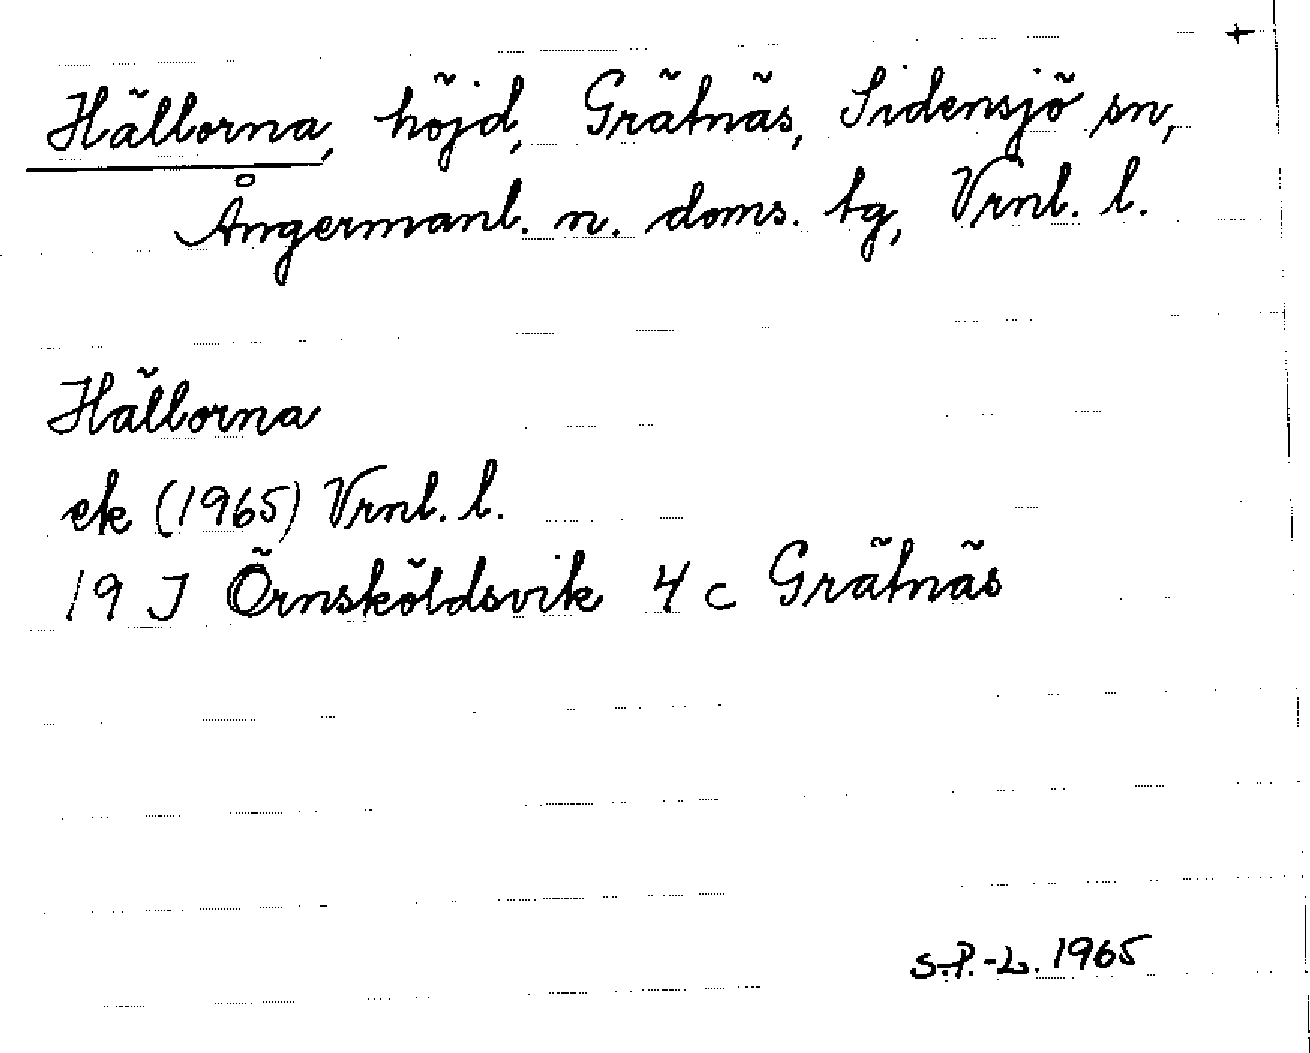 +
Hällorna, höjd, Grätnäs, Sidensjö sn,
Ångermanl. n. doms. tg, Vrnl. l.
Hällorna
ek (1965) Vrnl. l.
19 J Örnsköldsvik 4 c Grätnäs
S.P.-L. 1965